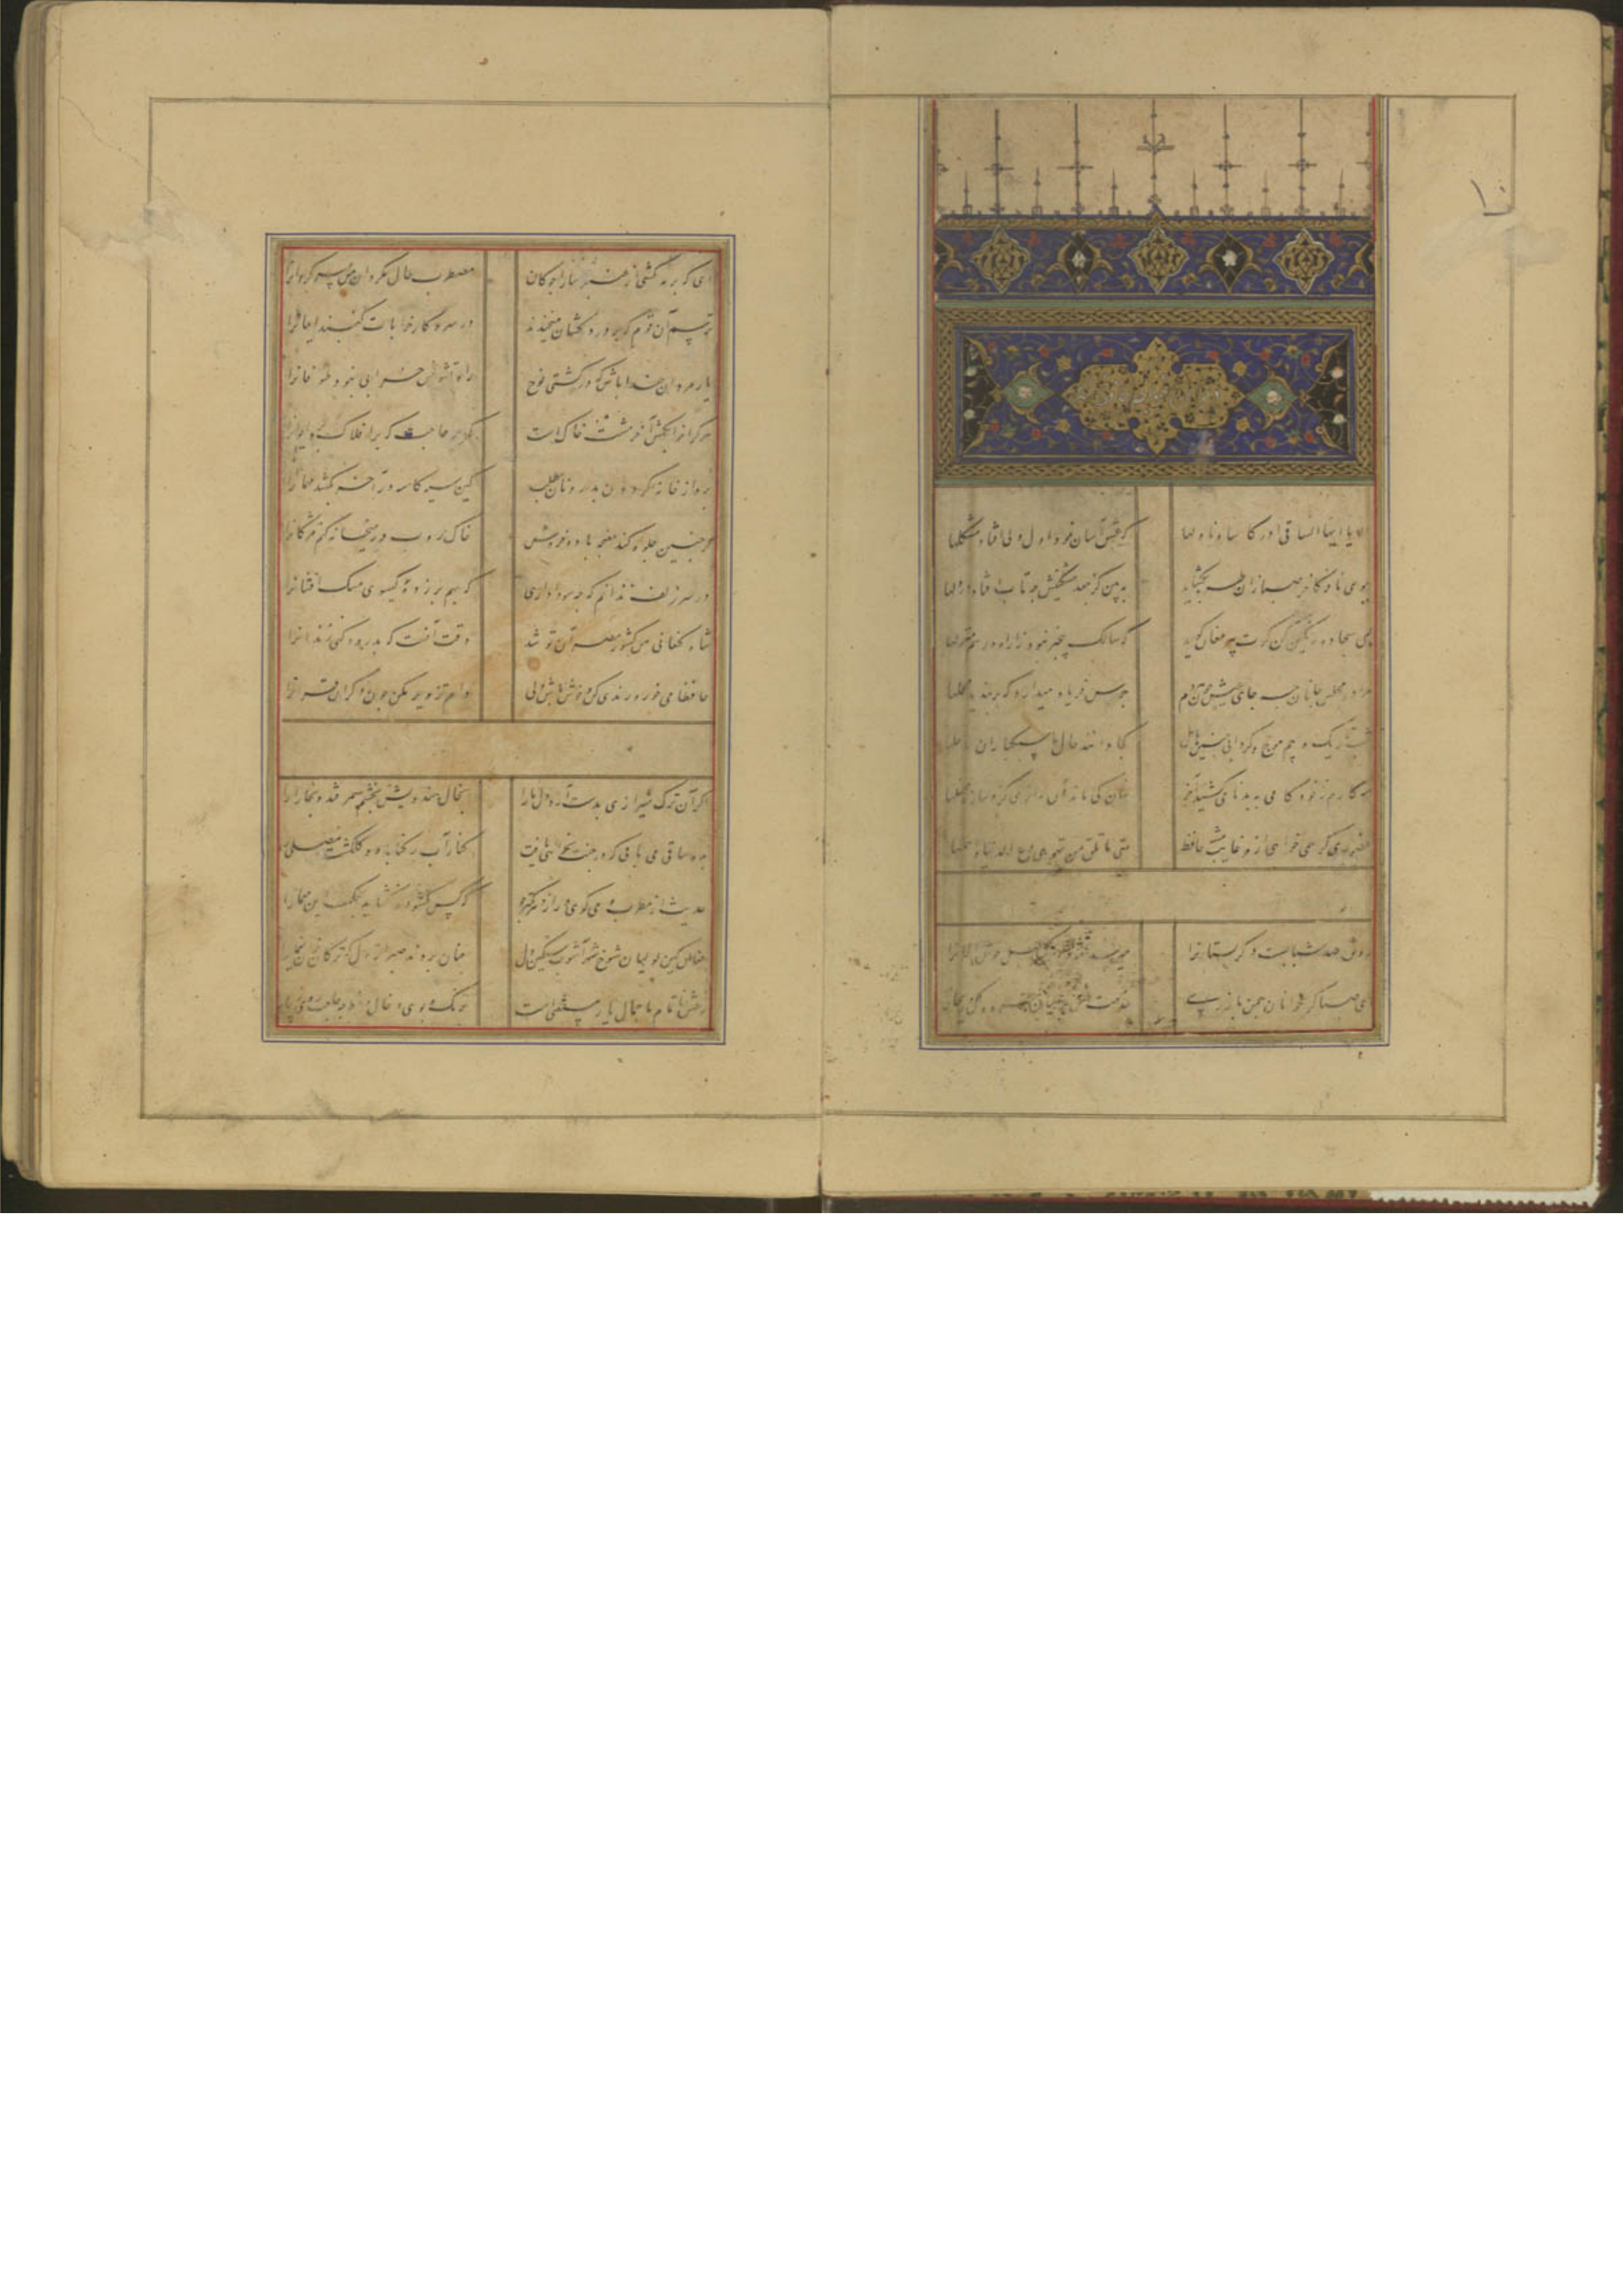 الا یا ایها الساقی ادر کاسا و ناولها که عشق آسان نمود اول ولی افتاد مشکلها
ببوی نافه کاخر صبا زان طره بگشاید به بین کز جعد مشکینش چه تاب افتاد در دلها
بمی سجاده رنگین کن گرت پیر مغان گوید که سالک بیخبر نبود ز راه و رسم منزلها
مرا در مجلس جانان چه جای عیش چون هر دم جرس فریاد میدارد که بربندید محملها
شب تاریک و بیم موج و گردابی چنین هایل کجا دانند حال ما سبکباران ساحلها
همه کارم ز خود کامی به بدنامی کشید آخر نهان کی ماند آن رازی کزو سازند محفلها
حضوری گر همی خواهی ازو غایب مشو حافظ متی ما تلق من تهوی دع الدنیا و اهملها
رونق عهد شبابست دگر بستانرا میرسد مژده گل بلبل خوش الحانرا
ای صبا گر بجوانان چمن باز رسی خدمت ما برسان سرو و گل و ریحانرا
ای که بر مه کشی از عنبر سارا چوگان مضطرب حال مگردان من سرگردانرا
ترسم آن قوم که بر دردکشان میخندند در سر کار خرابات کنند ایمانرا
یار مردان خدا باش که در کشتی نوح تشویش خرابی نبود طوفانرا
هر کرا خوابگه آخر مشتی خاکست حاجت که بر افلاک کشی ایوانرا
برو از خانه گردون بدر و نان مطلب کین سیه کاسه در آخر بکشد مهمانرا
گر چنین جلوه کند مغبچه باده فروش خاک روب در میخانه کنم مژگانرا
در سر زلف ندانم که چه سودا داری که بهم برزده گیسوی مشک افشانرا
شاه کنعانی من کشور مصر آن تو شد وقت آنست که بدرود کنی زندانرا
حافظا می خور و رندی کن و خوش باش ولی دام تزویر مکن چون دگران قرآنرا
اگر آن ترک شیرازی بدست آرد دل ما را بخال هندویش بخشم سمرقند و بخارا را
بده ساقی می باقی که در جنت نخواهی یافت کنار آب رکناباد و گلگشت مصلی
حدیث از مطرب و می گوی و راز دهر کمتر جو که کس نگشود و نگشاید بحکمت این معما را
فغان کین لولیان شوخ شهرآشوب سنگین دل چنان بردند صبر از دل که ترکان خوان یغما را
ز عشق ناتمام ما جمال یار مستغنی است برنگ و بوی و خال و خط چه حاجت روی زیبا را